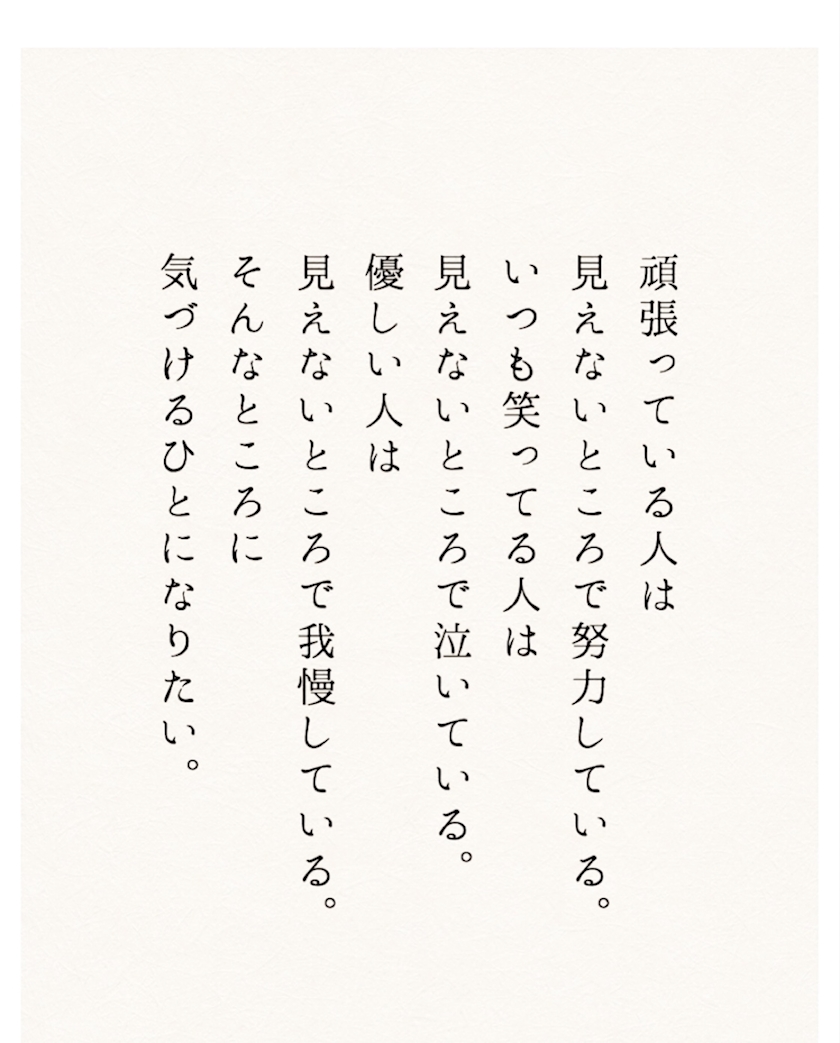 頑張っている人は
見えないところで努力している。
いつも笑ってる人は
見えないところで泣いている。
優しい人は
見えないところで我慢している。
そんなところに
気づけるひとになりたい。